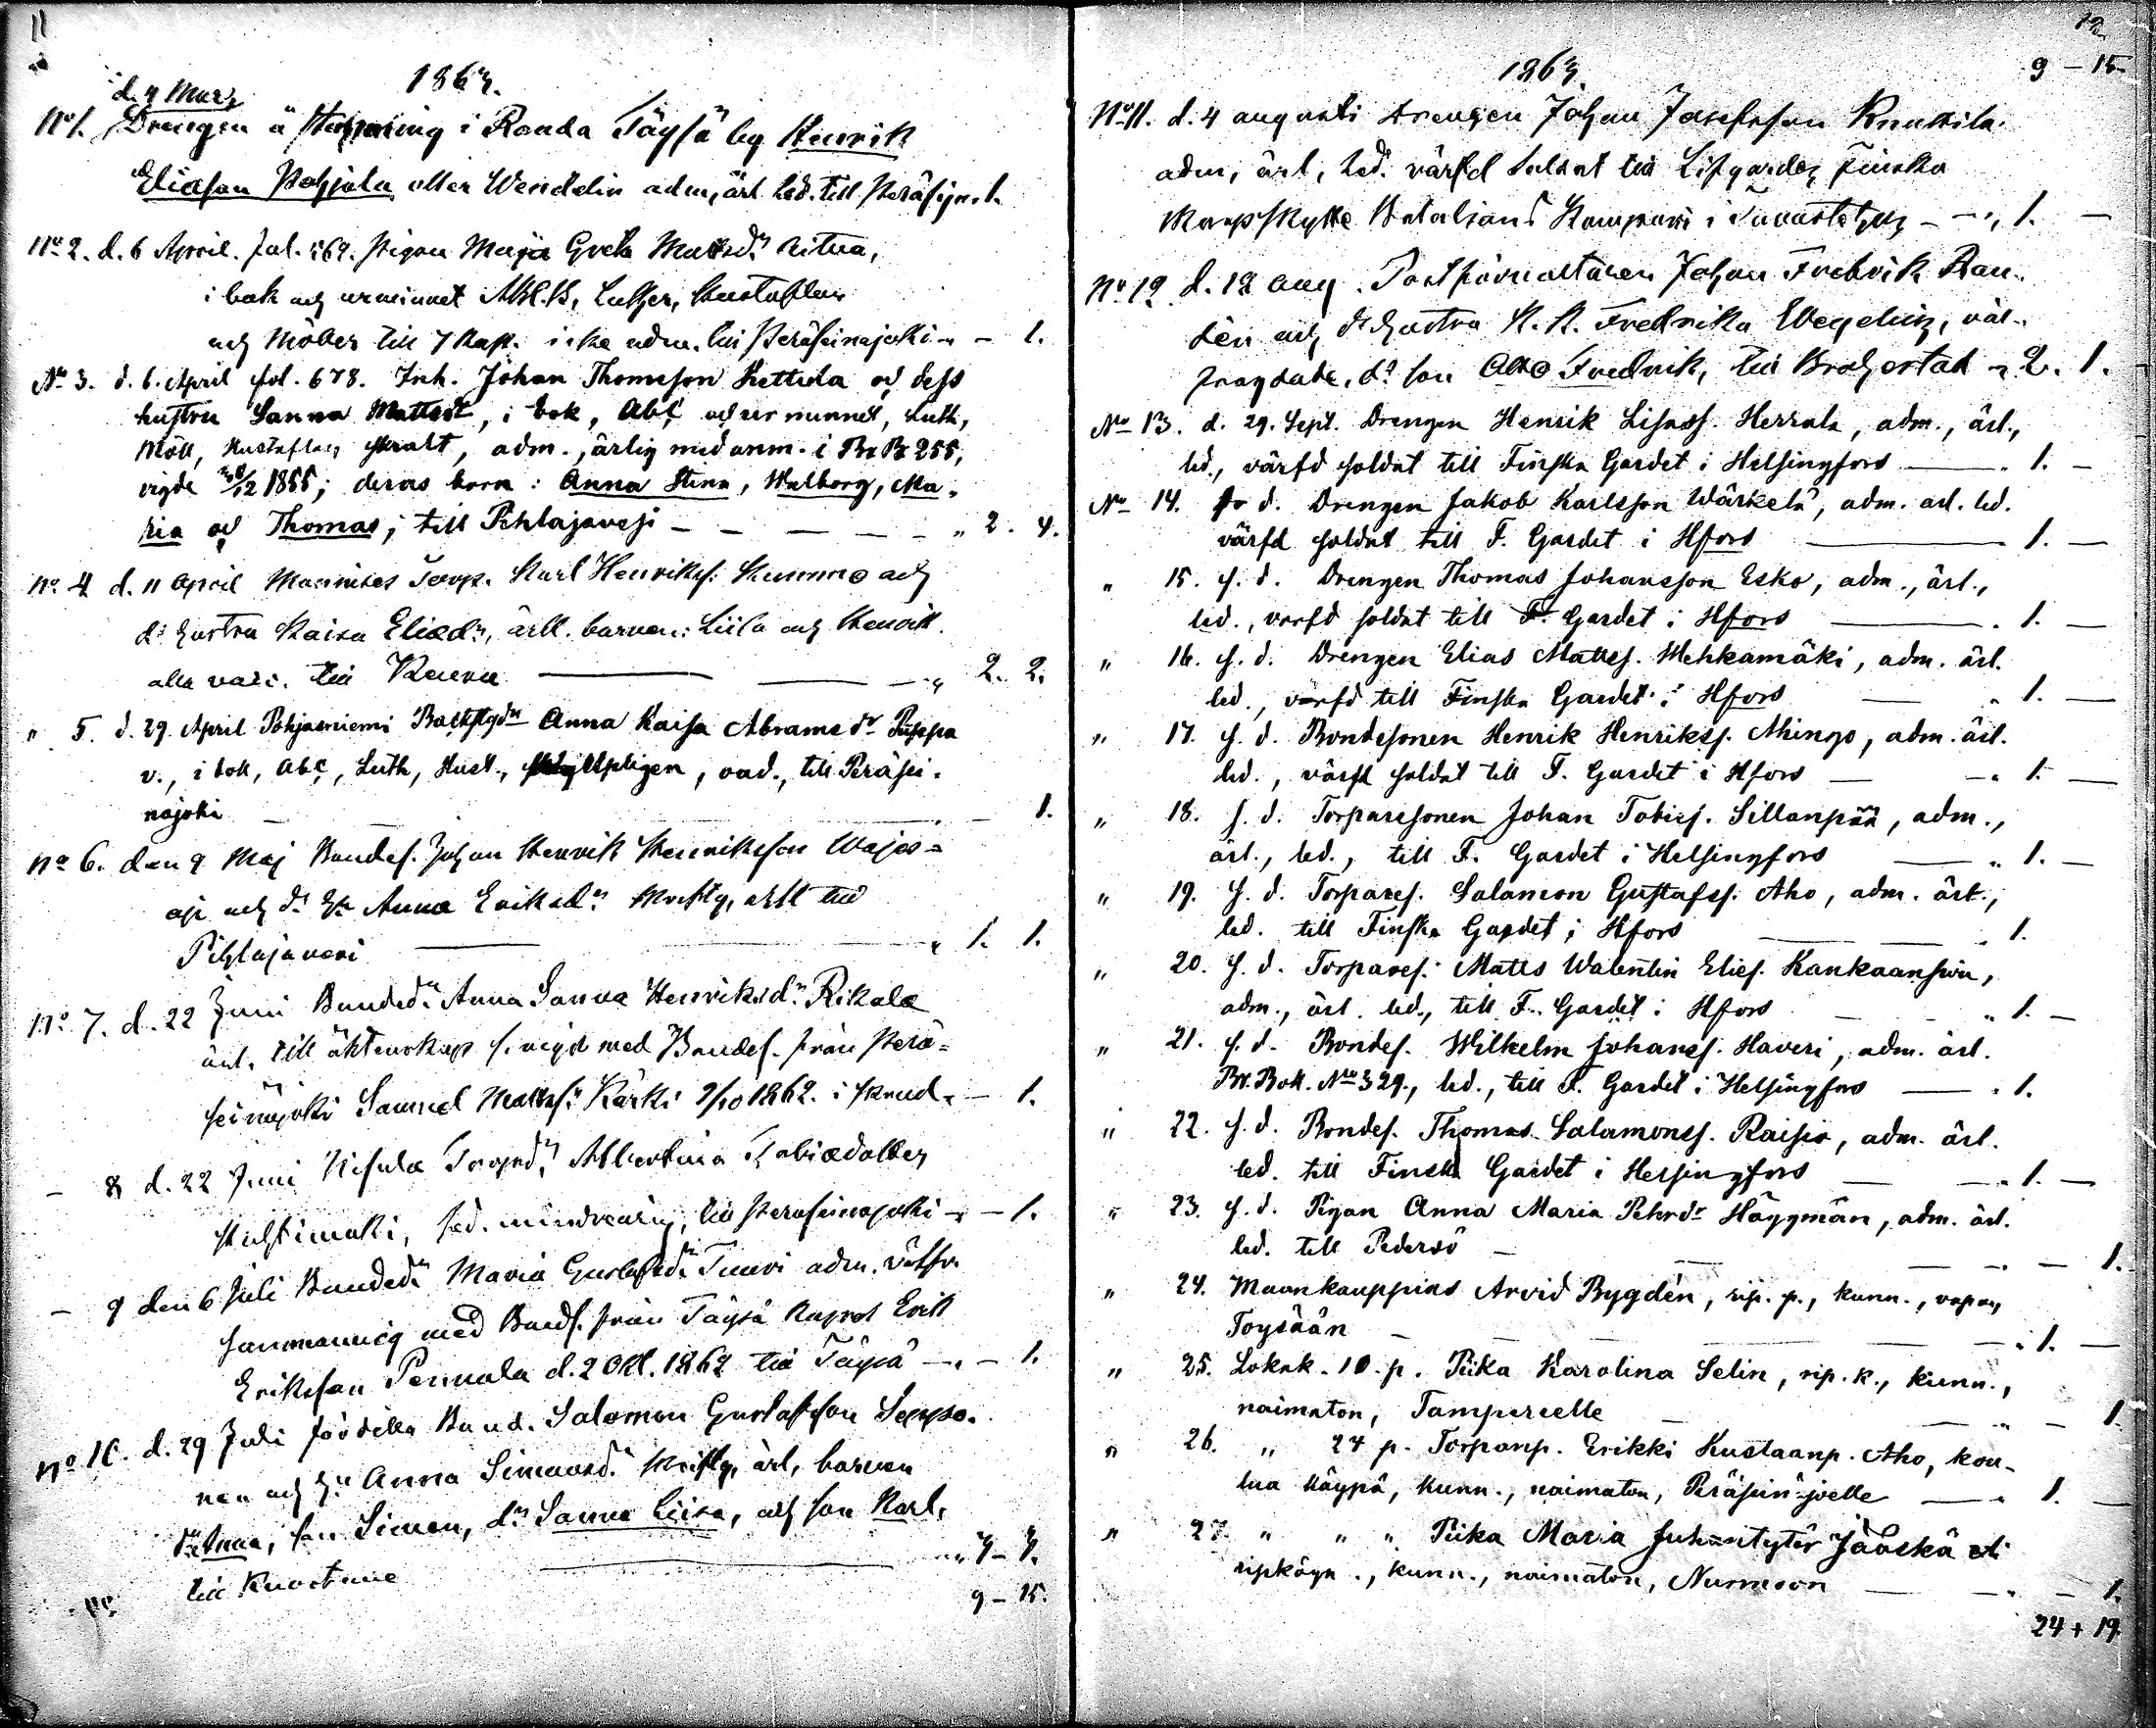 11
1863.
d. 4 Mars
No 1. Drengen å i Randa Töysä by Henrik
Eliasson Pohjola eller Wendelin adm, ärl. led. till Peräseinj. 1.
No 2. d. 6 April. fol. 569. Pigan Maja Greta Mattsdr Ritua,
i bok och urminnet Abc.B, Luther, Hustaflan
och Möller till 7 Kap. icke adm. till Peräseinajoki „ – 1.
No 3. d. 6. April fol. 678. Inh. Johan Thomsson Kettula och dess
hustru Sanna Mattsdr, i bok, Abc och ur minnet, Luth,
Möll, Hustaflan svalt, adm., ärlig med anm. i Br. B 255,
vigde 28/12 1855; deras barn: Anna Stina, Walborg, Ma-
ria och Thomas; till Pihlajavesi – – – – „ 2. 4.
No 4 d. 11 April Mannines Torp. Karl Henriks. Kummo och
ds hustru Kaisa Eliædr, ärll. barnen: Liisa och Henrik.
alla vacc. till Keuru „ 2. 2.
„ 5. d. 29. April Pohjasniemi Backstgdr Anna Kaisa Abramsdr Piippa
v., i bok, Abc, Luth, Hust., vacc., till Peräsei-
najoki – „ – 1.
No 6. den 9 Maj Bondes. Johan Henrik Henriksson Wajos-
och ds hu Anna Eriksdr skriftg. ärll till
Pihlajavesi „ 1. 1.
No 7. d. 22 Juni Bondedr Anna Sanna Henriksdr Rikala
ärl. till äktenskap s. vigd med Bondes. från Perä-
seinäjoki Samuel Matts. Kärki 9/10 1862. i – 1.
– 8 d. 22 Juni Torpdr Albertina Tobiædotter
mindreårig, till Peräseinajoki – – 1.
– 9 den 6 Juli Bondedr Maria Gustafsdr Tuuri adm.
sammanvig med Bonds. från Töysä Kapel Erik
Eriksson Pernala d. 2 Okt. 1862 till Töysä – „ – 1.
No 10. d. 29 Juli Bond. Salomon Gustafsson Seppä-
nen och hu Anna Simonsdr skriftg, ärl, barnen
dr Anna, son Simon, dr Sanna Lisa, och son Karl,
till Kuortane „ 4 – 4.
9 – 15.
12
1863.
9 – 15
No 11. d. 4 augusti Drengen Johan Josefsson Knuttila.
adm, ärl, led. värfd Soldat till Lifgardes Finska
Skarpskytte Bataljons Kompani i Tavastehus – „ 1. –
No 12 d. 12 aug. Postförvaltaren Johan Fredrik Ran-
lén och ds hustru K. K. Fredrika Wegelius, väl-
fräjdade, ds son Otto Fredrik, till Brahestad „ 2. 1.
No 13. d. 29. Sept. Drengen Henrik Lisass. Herrala, adm., ärl.,
led., värfd soldat till Finska Gardet i Helsingfors „ 1. –
No 14. s. d. Drengen Jakob Karlsson Wärkelä, adm. ärl. led.
värfd soldat till F. Gardet i Hfors „ 1. –
„ 15. s. d. Drengen Thomas Johansson Esko, adm., ärl.,
led., värfd soldat till F. Gardet i Hfors „ 1. –
„ 16. s. d. Drengen Elias Mattes. Mehkamäki, adm. ärl.
led., värfd till Finska Gardet i Hfors – „ 1. –
„ 17. s. d. Bondesonen Henrik Henrikss. Ahingo, adm. ärl.
led., värfd soldat till F. Gardet i Hfors – „ 1. –
„ 18. s. d. Torparesonen Johan Tobies. Sillanpää, adm.,
ärl., led., till F. Gardet i Helsingfors – „ 1. –
„ 19. s. d. Torpares. Salamon Gustafss. Aho, adm. ärl.,
led. till Finska Gardet i Hfors „ 1.
„ 20. s. d. Torpares. Matts Walentin Elies. Kankaansivu,
adm., ärl. led., till F. Gardet i Hfors „ 1. –
„ 21. s. d. Bondes. Wilhelm Johanss. Haveri, adm. ärl.
Br. Bok. No 329., led., till F. Gardet i Helsingfors „ 1.
„ 22. s. d. Bondes. Thomas Salamonss. Raisio, adm. ärl.
led. till Finska Gardet i Helsingfors – „ 1. –
„ 23. s. d. Pigan Anna Maria Pehrdr Häggmän, adm. ärl.
led. till Pedersö – „ – 1.
„ 24. Maankauppias Arvid Bygdén, rip. p., kunn., vapaa,
Töysään – „ 1. –
„ 25. Lokak. 10. p. Piika Karolina Selin, rip. k., kunn.,
naimaton, Tampereelle „ – 1.
„ 26. „ 24 p. Torpanp. Erikki Kustaanp. Aho, kou-
lua käypä, kunn., naimaton, Peräsein-joelle „ 1. –
„ 27. „ „ „ Piika Maria Juhontytär Jääskä
ripkäyn., kunn., naimaton, Nurmoon „ – 1.
24 + 19